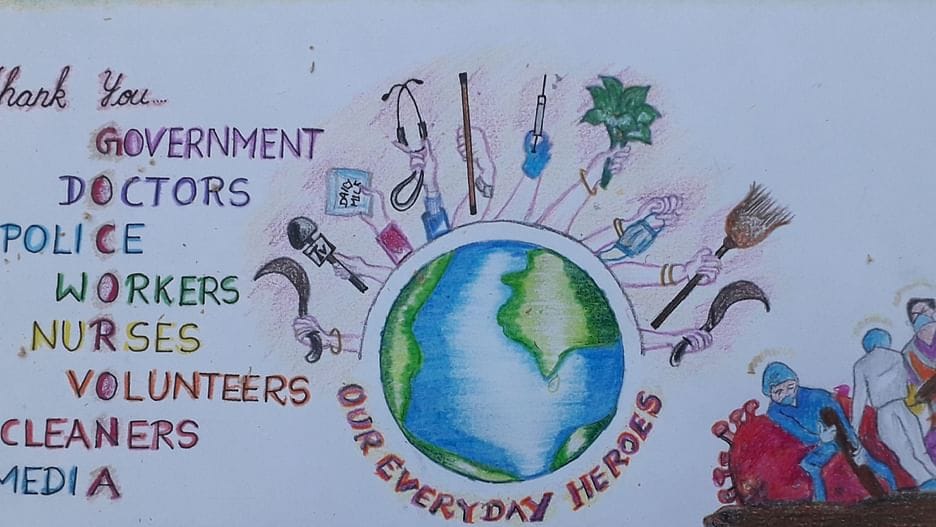 Thank You...
GOVERNMENT
DOCTORS
POLICE
WORKERS
NURSES
VOLUNTEERS
CLEANERS
MEDIA
DAILY MILK
TV
OUR EVERYDAY HEROES